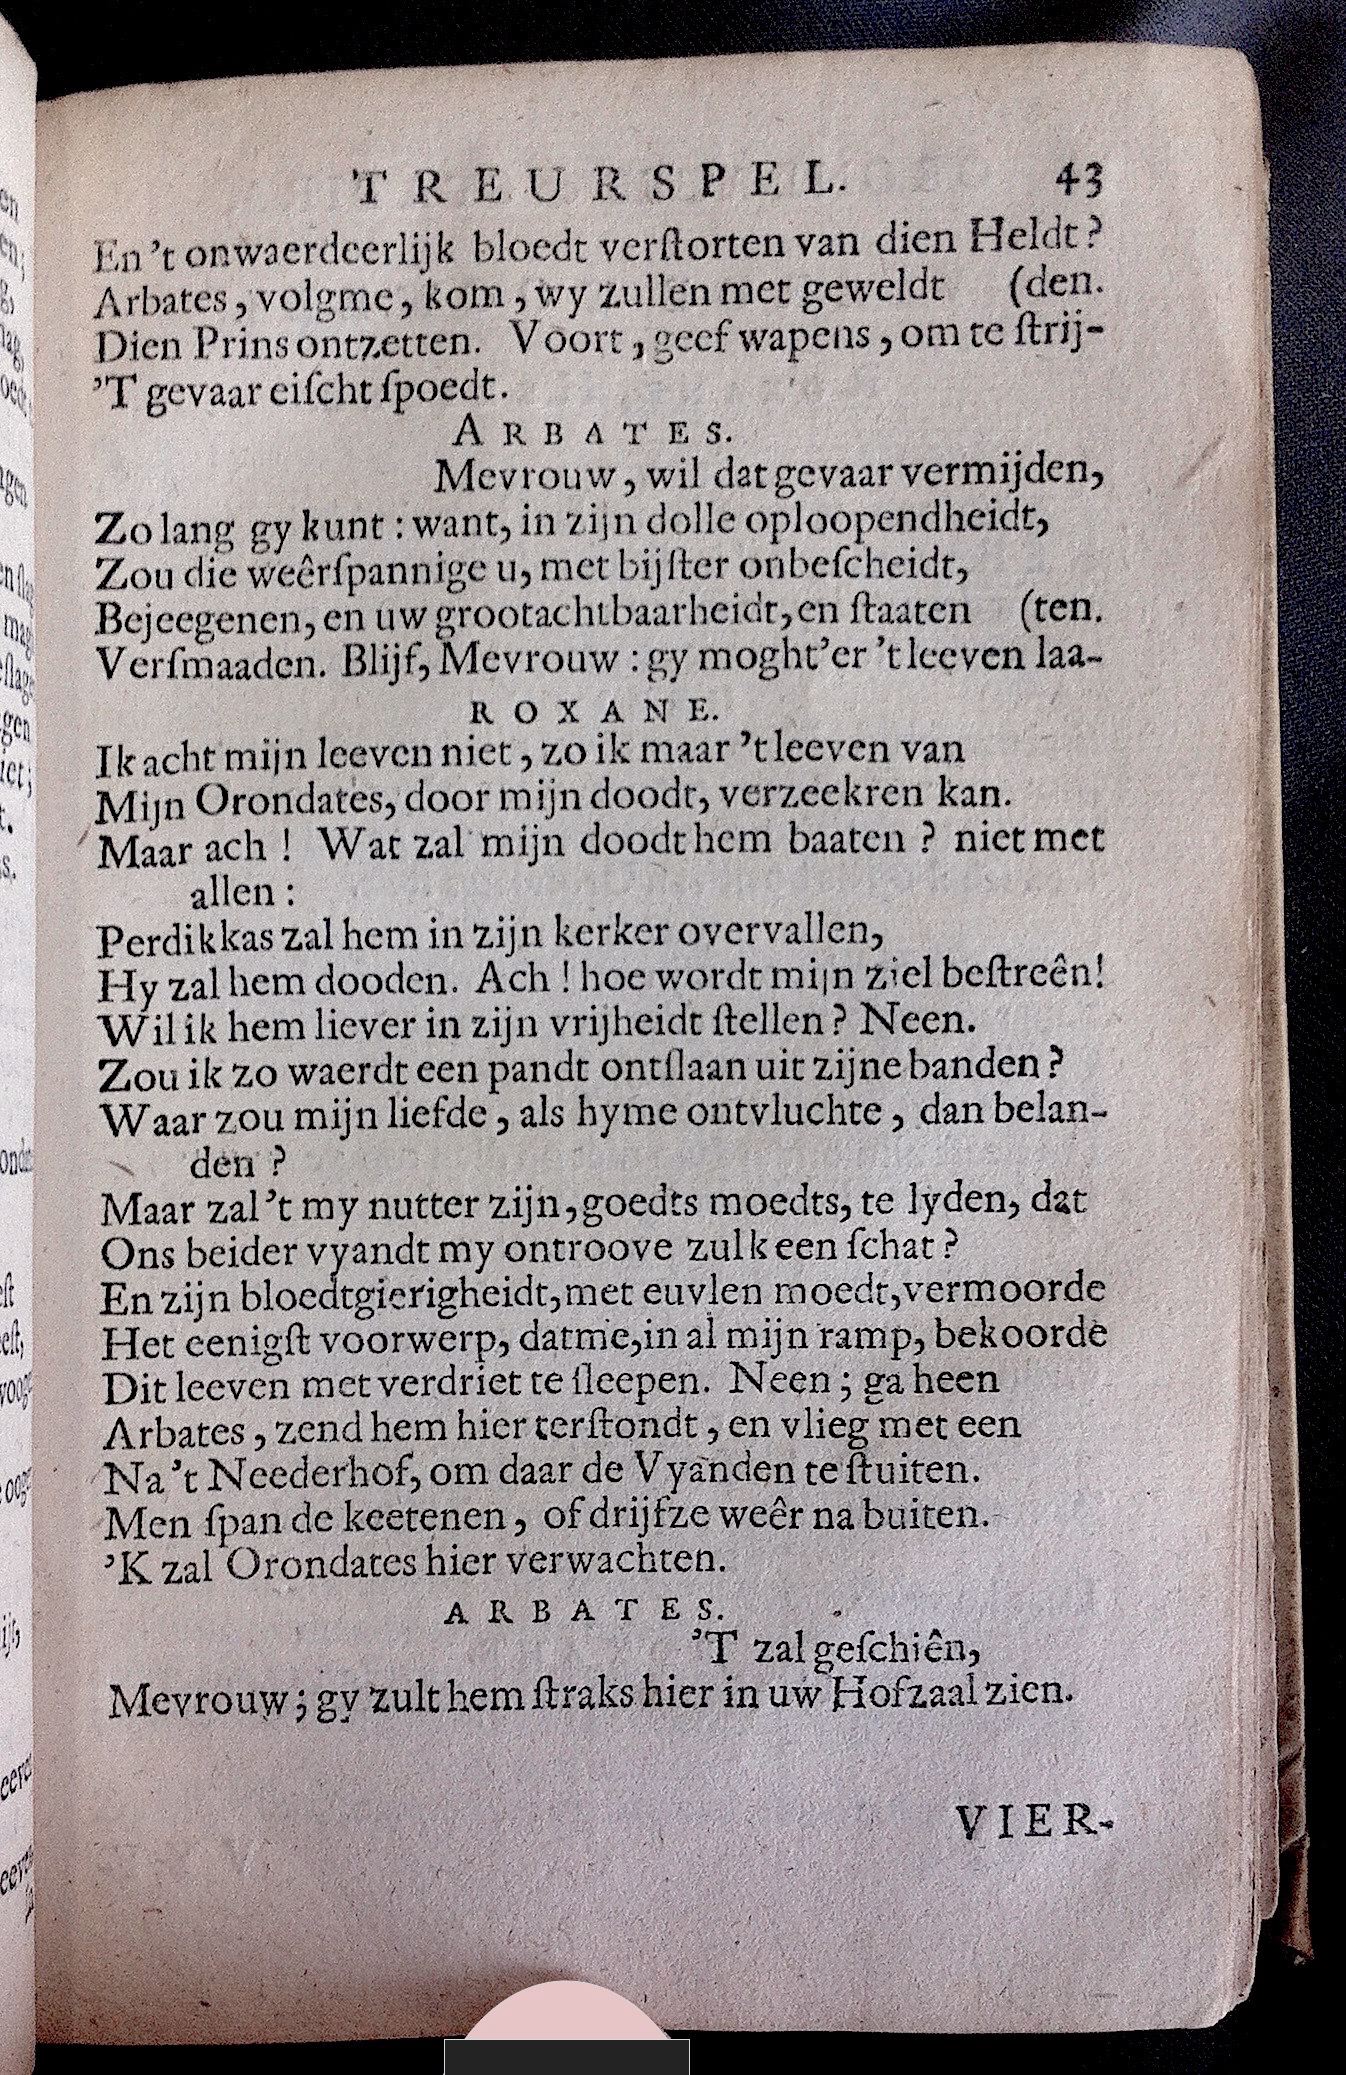 TREURSPEL. 43
En 't onwaerdeerlijk bloedt verſtorten van dien Heldt?
Arbates, volgme, kom, wy zullen met geweldt (den.
Dien Prins ontzetten. Voort, geef wapens, om te ſtrij-
'T gevaar eiſcht ſpoedt.
ARBATES.
Mevrouw, wil dat gevaar vermijden,
Zo lang gy kunt: want, in zijn dolle oploopendheidt,
Zou die weêrſpannige u, met bijſter onbeſcheidt,
Bejeegenen, en uw grootachtbaarheidt, en ſtaaten (ten.
Verſmaaden. Blijf, Mevrouw: gy moght'er 't leeven laa-
ROXANE.
Ik acht mijn leeven niet, zo ik maar 't leeven van
Mijn Orondates, door mijn doodt, verzeekren kan.
Maar ach! Wat zal mijn doodt hem baaten? niet met
allen:
Perdikkas zal hem in zijn kerker overvallen,
Hy zal hem dooden. Ach! hoe wordt mijn ziel beſtreên!
Wil ik hem liever in zijn vrijheidt ſtellen? Neen.
Zou ik zo waerdt een pandt ontſlaan uit zijne banden?
Waar zou mijn liefde, als hyme ontvluchte, dan belan-
den?
Maar zal 't my nutter zijn, goedts moedts, te lyden, dat
Ons beider vyandt my ontroove zulk een ſchat?
En zijn bloedtgierigheidt, met euvlen moedt, vermoorde
Het eenigſt voorwerp, datme, in al mijn ramp, bekoorde
Dit leeven met verdriet te ſleepen. Neen; ga heen
Arbates, zend hem hier terſtondt, en vlieg met een
Na 't Neederhof, om daar de Vyanden te ſtuiten.
Men ſpan de keetenen, of drijfze weêr na buiten.
'K zal Orondates hier verwachten.
ARBATES.
'T zal geſchiên,
Mevrouw; gy zult hem ſtraks hier in uw Hofzaal zien.
VIER-